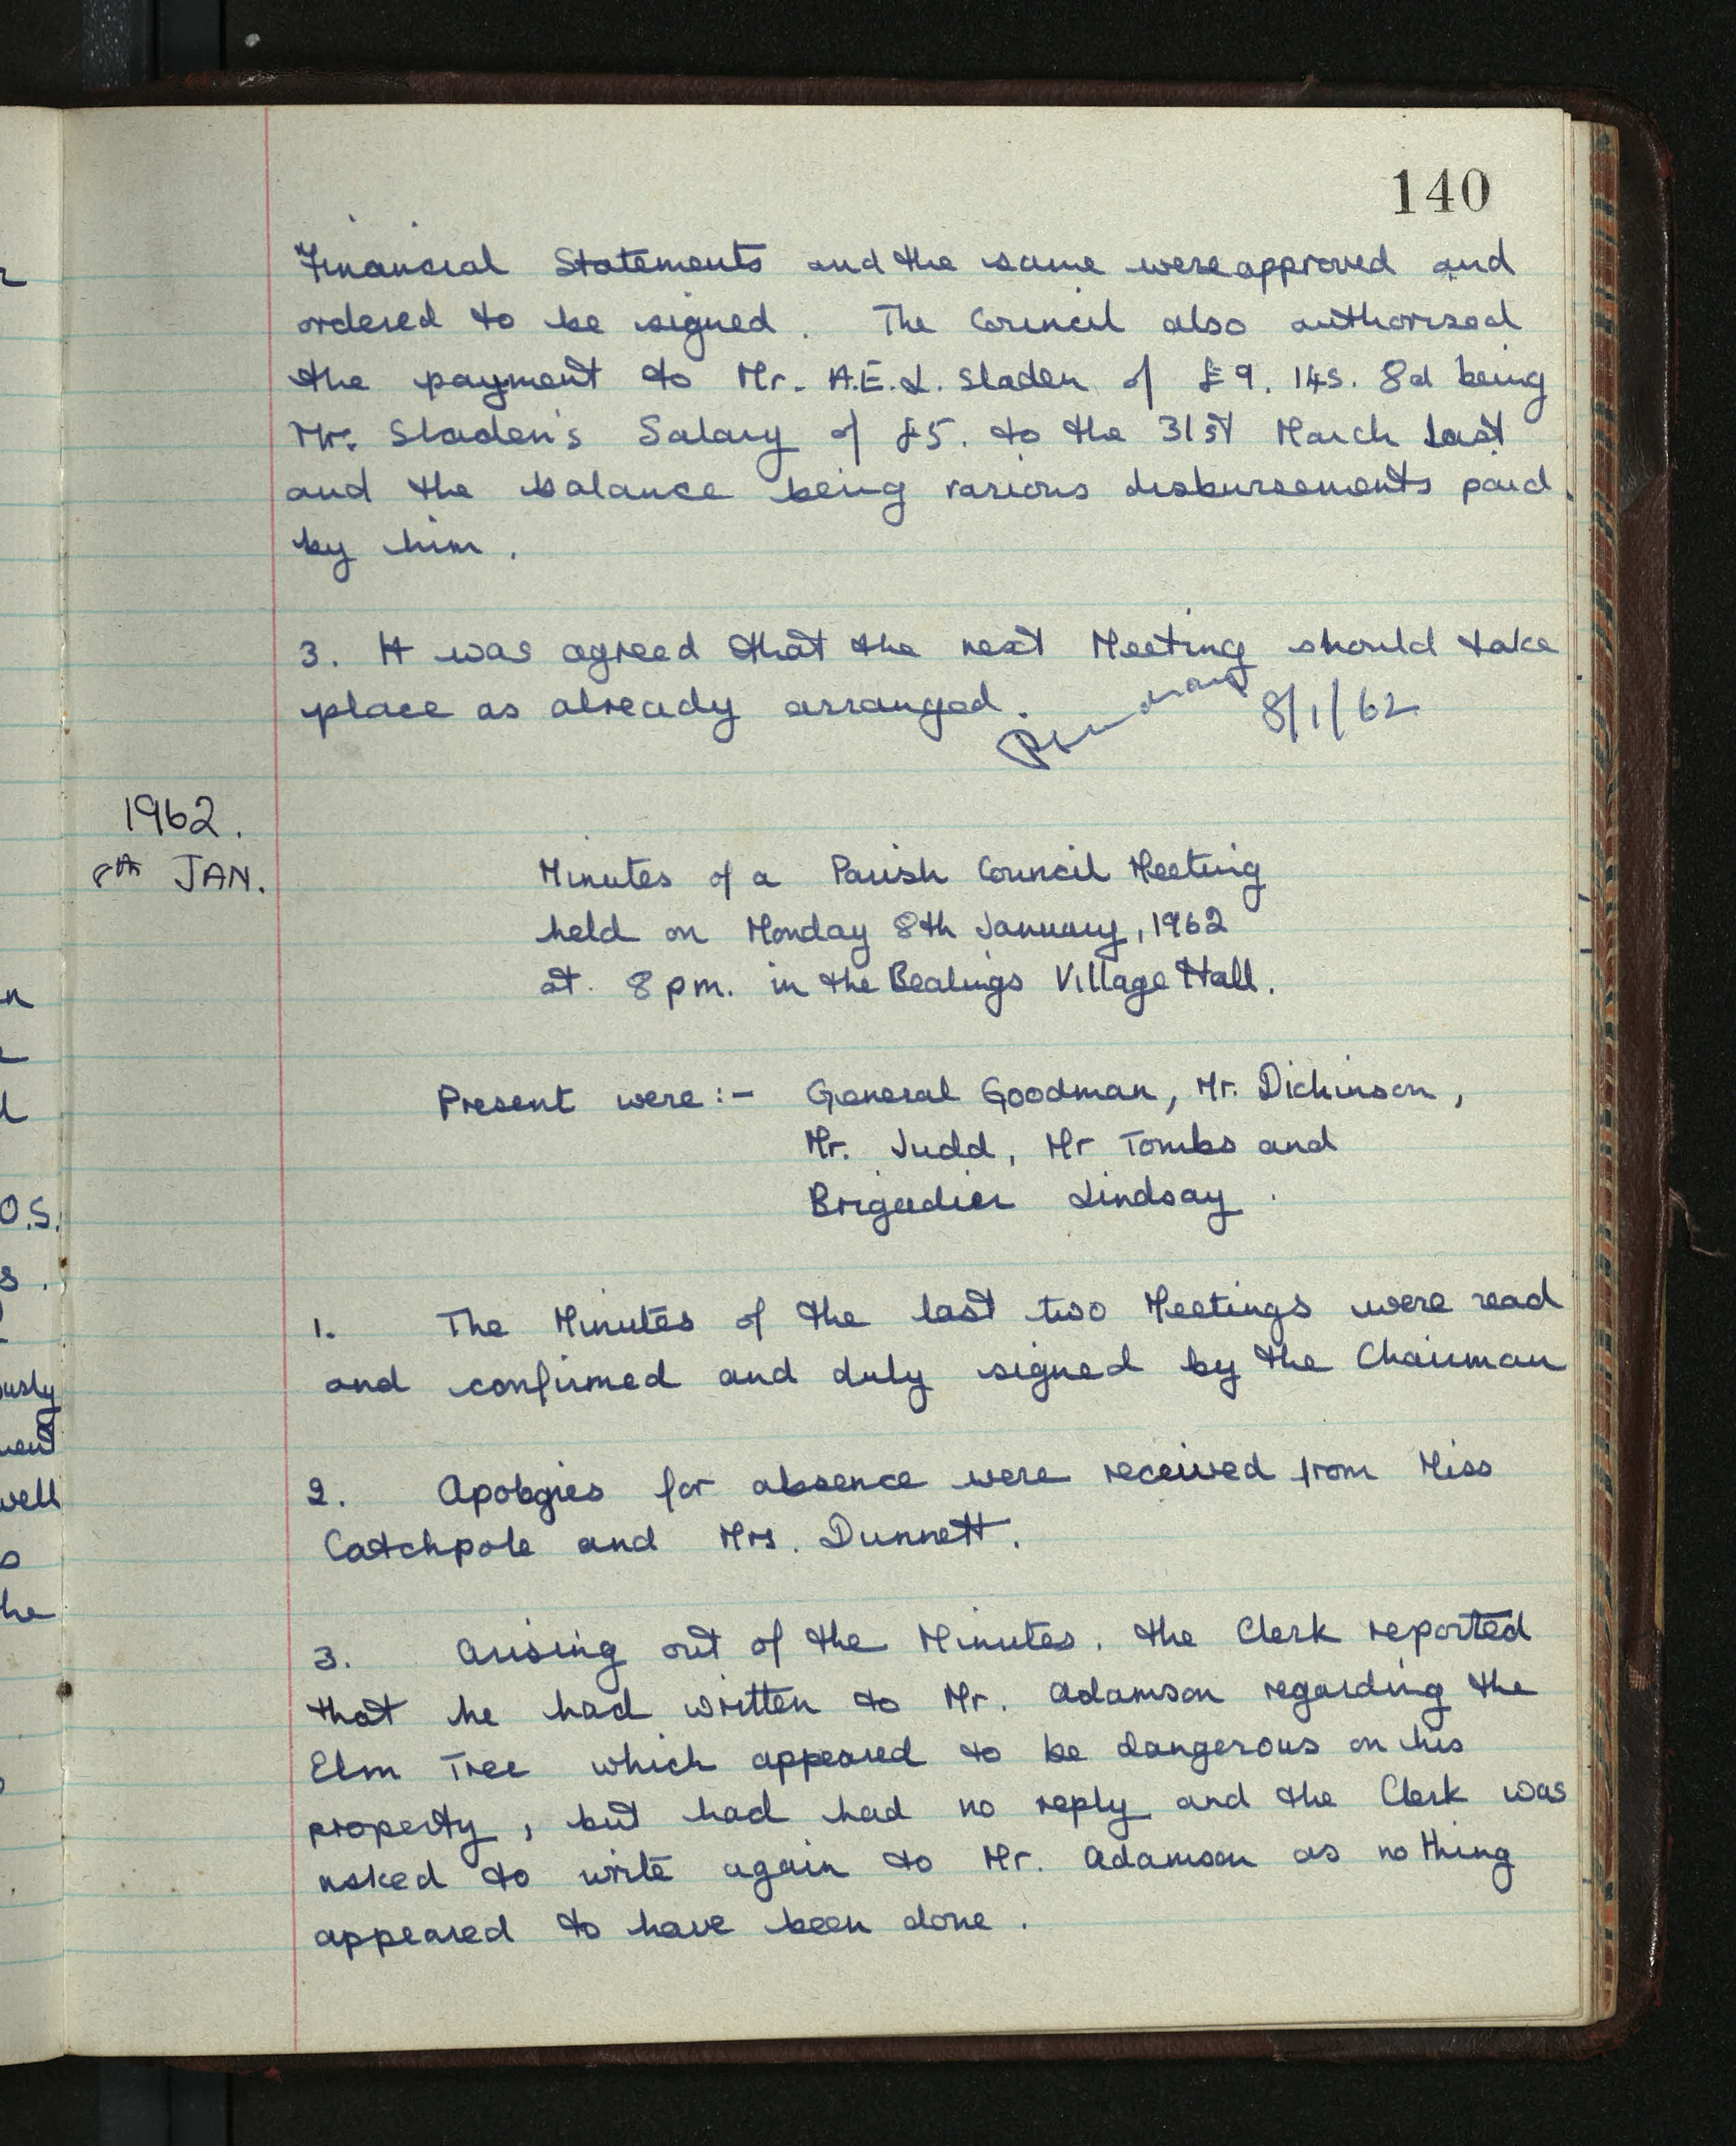 140
Financial Statements and the same were approved and
ordered to be signed. The Council also authorised
the payment to Mr. A.E.L. Sladen of £9. 14s. 8d being
Mr. Sladen's Salary of £5. to the 31st March last
and the balance being various disbursements paid
by him.
3. It was agreed that the next Meeting should take
place as already arranged.
8/1/62
1962.
8th JAN.
Minutes of a Parish Council Meeting
held on Monday 8th January, 1962
at. 8 pm. in the Bealings Village Hall.
Present were:- General Goodman, Mr. Dickinson,
Mr. Judd, Mr Tombs and
Brigadier Lindsay.
1. The Minutes of the last two Meetings were read
and confirmed and duly signed by the Chairman
2. Apologies for absence were received from Miss
Catchpole and Mrs. Dunnett.
3. Arising out of the Minutes. the Clerk reported
that he had written to Mr. Adamson regarding the
Elm Tree which appeared to be dangerous on his
property, but had had no reply and the Clerk was
asked to write again to Mr. Adamson as nothing
appeared to have been done.
O.S.
s.
ously
well
he